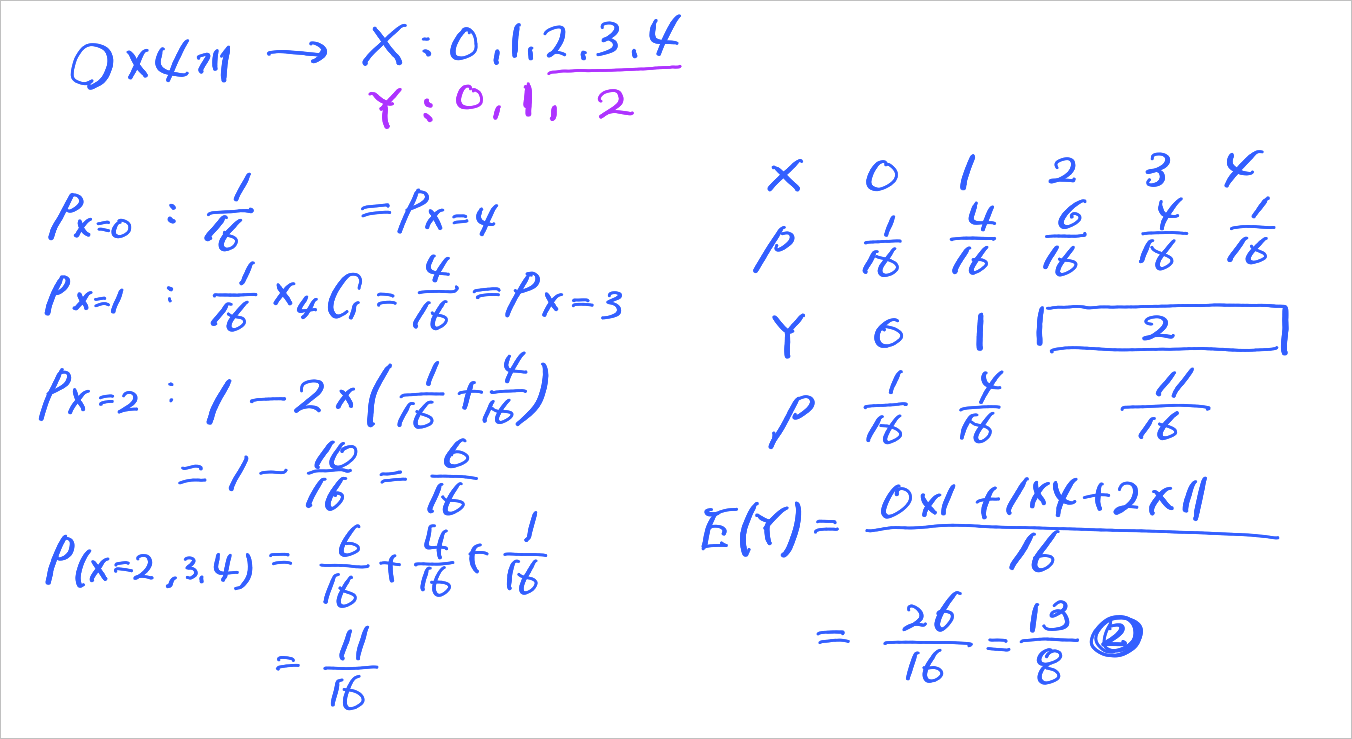 O×4개 → X : 0, 1, 2, 3, 4
Y : 0, 1, 2
P_{X=0} : 1/16 = P_{X=4}
P_{X=1} : 1/16 × ₄C₁ = 4/16 = P_{X=3}
P_{X=2} : 1 - 2 × (1/16 + 4/16)
= 1 - 10/16 = 6/16
P(X=2,3,4) = 6/16 + 4/16 + 1/16
= 11/16
X 0 1 2 3 4
P 1/16 4/16 6/16 4/16 1/16
Y 0 1 2
P 1/16 4/16 11/16
E(Y) = (0×1 + 1×4 + 2×11)/16
= 26/16 = 13/8 ②